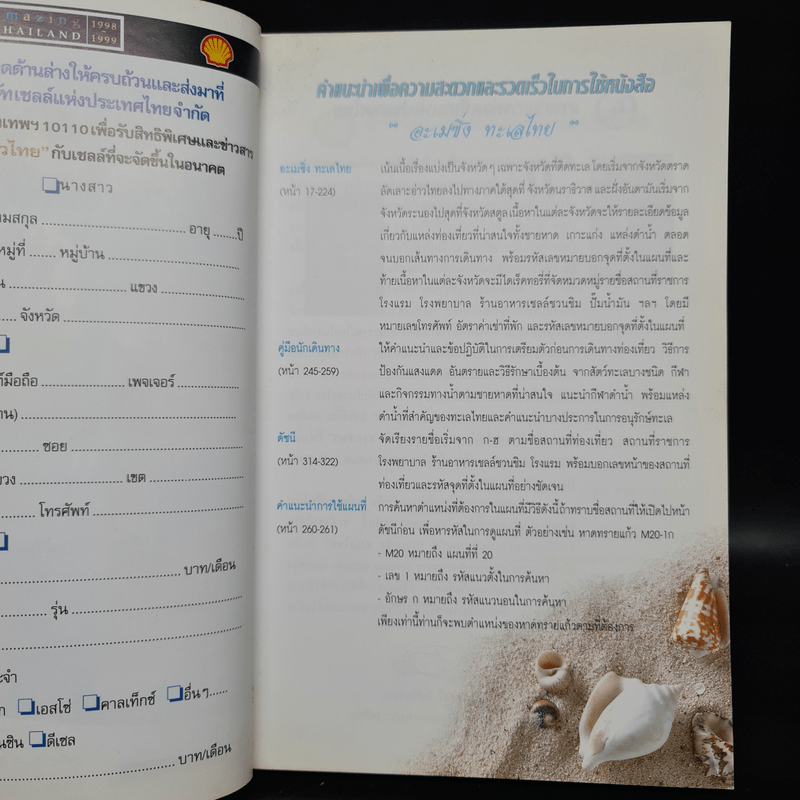 mazing
THAILAND
1998
1999
ดด้านล่างให้ครบถ้วนและส่งมาที่
ัทเชลล์แห่งประเทศไทยจำกัด
งเทพฯ 10110 เพื่อรับสิทธิพิเศษและข่าวสาร
วไทย" กับเชลล์ที่จะจัดขึ้นในอนาคต
นางสาว
ามสกุล ........ อายุ ........ปี
หมู่ที่ ...... หมู่บ้าน ........
น ........ แขวง ........
........ จังหวัด ........
ท์มือถือ ........ เพจเจอร์ ........
าน) ........
........ ซอย ........
ขวง ........ เขต ........
........ โทรศัพท์ ........
........ บาท/เดือน
........ รุ่น ........
ะจำ
ก เอสโซ่ คาลเท็กซ์ อื่นๆ......
นซิน ดีเซล
........ บาท/เดือน
คำแนะนำเพื่อความสะดวกและรวดเร็วในการใช้หนังสือ
" อะเมซิ่ง ทะเลไทย "
อะเมซิ่ง ทะเลไทย
(หน้า 17-224)
เน้นเนื้อเรื่องแบ่งเป็นจังหวัดๆ เฉพาะจังหวัดที่ติดทะเล โดยเริ่มจากจังหวัดตราด
ลัดเลาะอ่าวไทยลงไปทางภาคใต้สุดที่ จังหวัดนราธิวาส และฝั่งอันดามันเริ่มจาก
จังหวัดระนองไปสุดที่จังหวัดสตูล เนื้อหาในแต่ละจังหวัดจะให้รายละเอียดข้อมูล
เกี่ยวกับแหล่งท่องเที่ยวที่น่าสนใจทั้งชายหาด เกาะแก่ง แหล่งดำน้ำ ตลอด
จนบอกเส้นทางการเดินทาง พร้อมรหัสเลขหมายบอกจุดที่ตั้งในแผนที่และ
ท้ายเนื้อหาในแต่ละจังหวัดจะมีไดเร็คทอรี่ที่จัดหมวดหมู่รายชื่อสถานที่ราชการ
โรงแรม โรงพยาบาล ร้านอาหารเชลล์ชวนชิม ปั๊มน้ำมัน ฯลฯ โดยมี
หมายเลขโทรศัพท์ อัตราค่าเช่าที่พัก และรหัสเลขหมายบอกจุดที่ตั้งในแผนที่
คู่มือนักเดินทาง
(หน้า 245-259)
ให้คำแนะนำและข้อปฏิบัติในการเตรียมตัวก่อนการเดินทางท่องเที่ยว วิธีการ
ป้องกันแสงแดด อันตรายและวิธีรักษาเบื้องต้น จากสัตว์ทะเลบางชนิด กีฬา
และกิจกรรมทางน้ำตามชายหาดที่น่าสนใจ แนะนำกีฬาดำน้ำ พร้อมแหล่ง
ดำน้ำที่สำคัญของทะเลไทยและคำแนะนำบางประการในการอนุรักษ์ทะเล
ดัชนี
(หน้า 314-322)
จัดเรียงรายชื่อเริ่มจาก ก-ฮ ตามชื่อสถานที่ท่องเที่ยว สถานที่ราชการ
โรงพยาบาล ร้านอาหารเชลล์ชวนชิม โรงแรม พร้อมบอกเลขหน้าของสถานที่
ท่องเที่ยวและรหัสจุดที่ตั้งในแผนที่อย่างชัดเจน
คำแนะนำการใช้แผนที่
(หน้า 260-261)
การค้นหาตำแหน่งที่ต้องการในแผนที่มีวิธีดังนี้ถ้าทราบชื่อสถานที่ให้เปิดไปหน้า
ดัชนีก่อน เพื่อหารหัสในการดูแผนที่ ตัวอย่างเช่น หาดทรายแก้ว M20-1ก
- M20 หมายถึง แผนที่ที่ 20
- เลข 1 หมายถึง รหัสแนวตั้งในการค้นหา
- อักษร ก หมายถึง รหัสแนวนอนในการค้นหา
เพียงเท่านี้ท่านก็จะพบตำแหน่งของหาดทรายแก้วตามที่ต้องการ